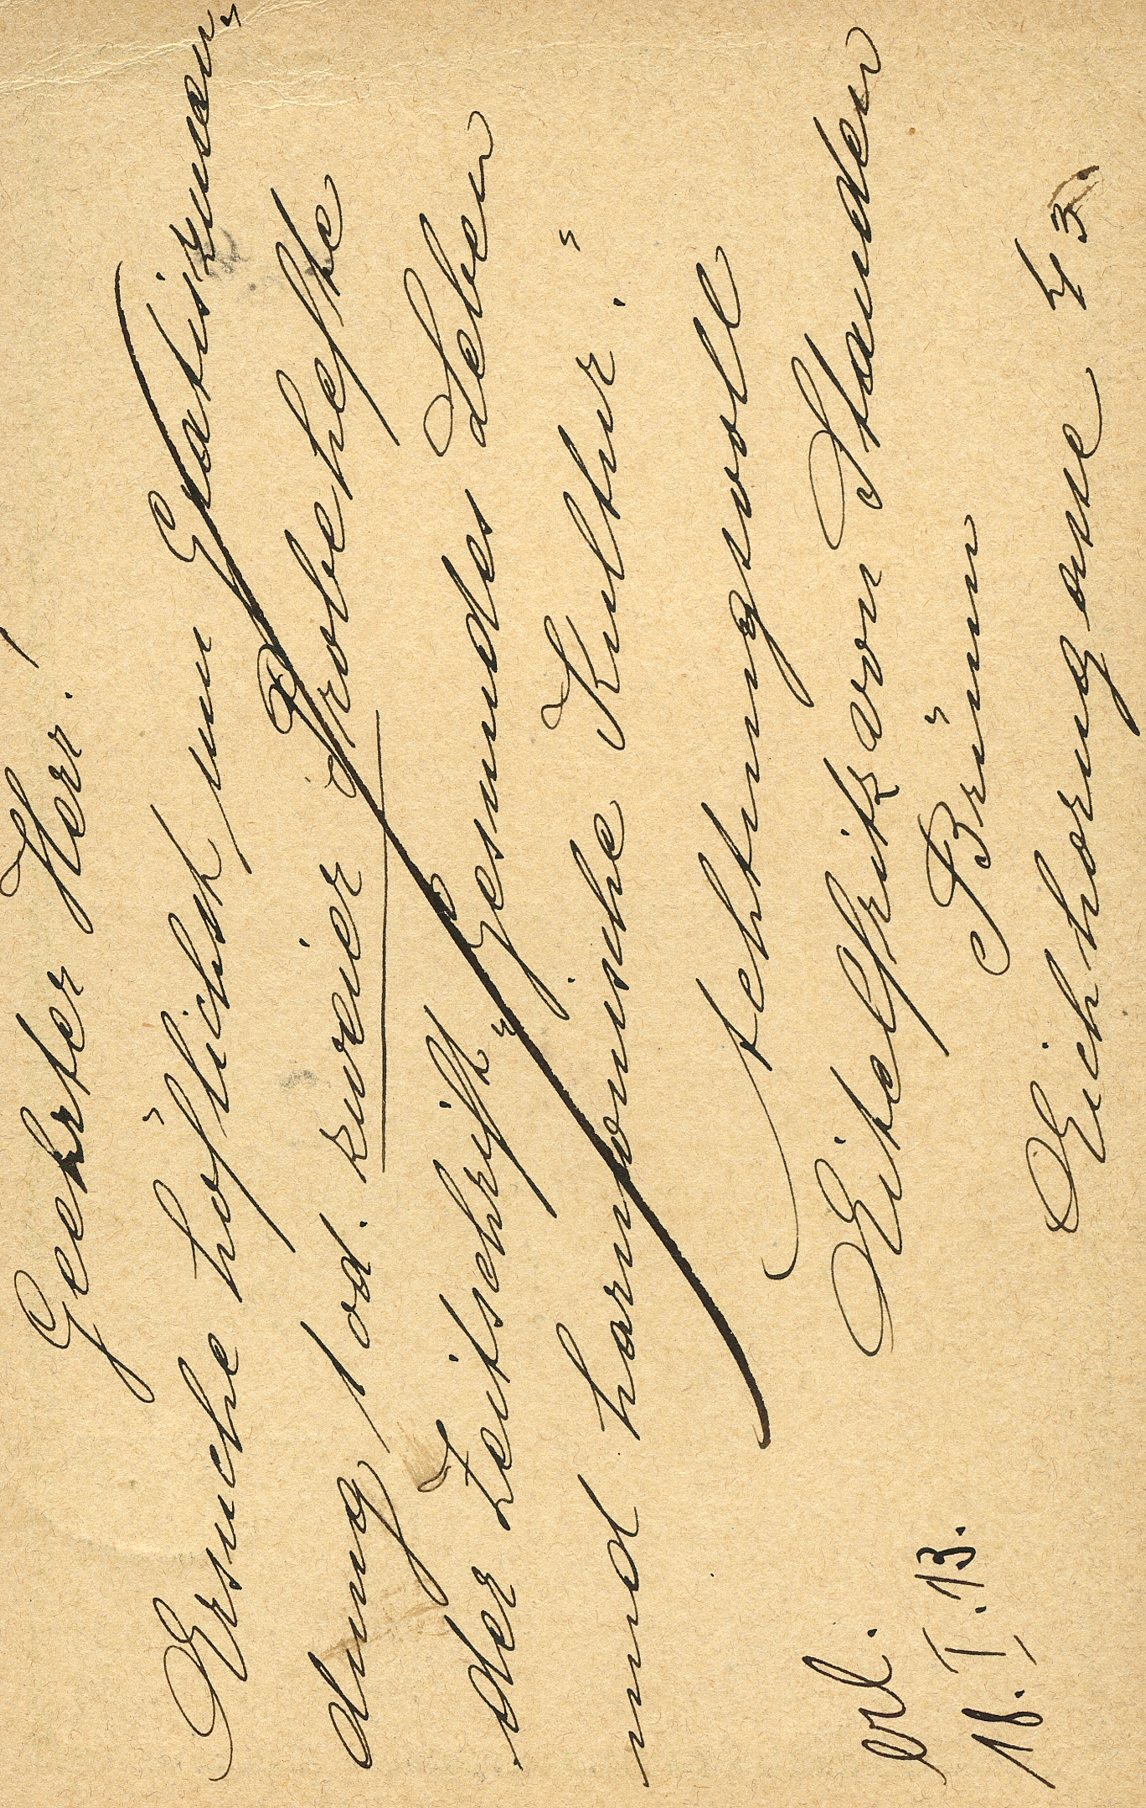 Geehrter Herr!
Ersuche höflichst um Gratiszusen„
dung 1 od. zweier Probehefte
der Zeitschrift „Gesundes Leben
und harmonische Kultur."
Achtungsvoll
Eitelfritz von Standen
Brünn
Eichhorngasse 43.
erl.
18.I.13.